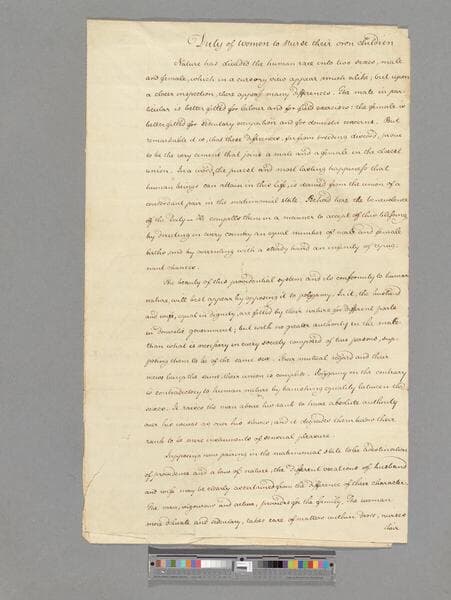 Duty of Women to Nurse their own Children
Nature has divided the human race into two sexes, male
and female, which in a cursory view appear much alike; but upon
a closer inspection, there appear many differences. The male in par-
ticular is better fitted for labour and for field exercises: the female is
better fitted for sedentary occupations and for domestic concerns. But
remarkable it is, that these differences, far from breeding discord, prove
to be the very cement that joins a male and a female in the closest
union. In a word, the purest and most lasting happiness that
human beings can attain in this life, is derived from the union of a
concordant pair in the matrimonial state. Behold here the benevolence
of the Deity: He compells them in a manner to accept of this blessing,
by directing in every country an equal number of male and female
births, and by overruling with a steady hand an infinity of repug-
nant chances.
The beauty of this providential system and its conformity to human
nature, will best appear by opposing it to polygamy. In it, the husband
and wife, equal in dignity, are fitted by their nature for different parts
in domestic government; but with no greater authority in the male
than what is necessary in every society composed of two persons, sup-
posing them to be of the same sex. Their mutual regard and their
views being the same, their union is complete. Polygamy on the contrary
is contradictory to human nature by banishing equality between the
sexes. It raises the man above his rank to have absolute authority
over his wives as over his slaves; and it degrades them below their
rank to be mere instruments of sensual pleasure.
Supposing now pairing in the matrimonial state to be a destination
of providence and a law of nature, the different vocations of husband
and wife may be clearly ascertained from the difference of their character.
The man, vigourous and active, provides for the family. The woman
more delicate and sedentary, takes care of matters within doors, nurses
their